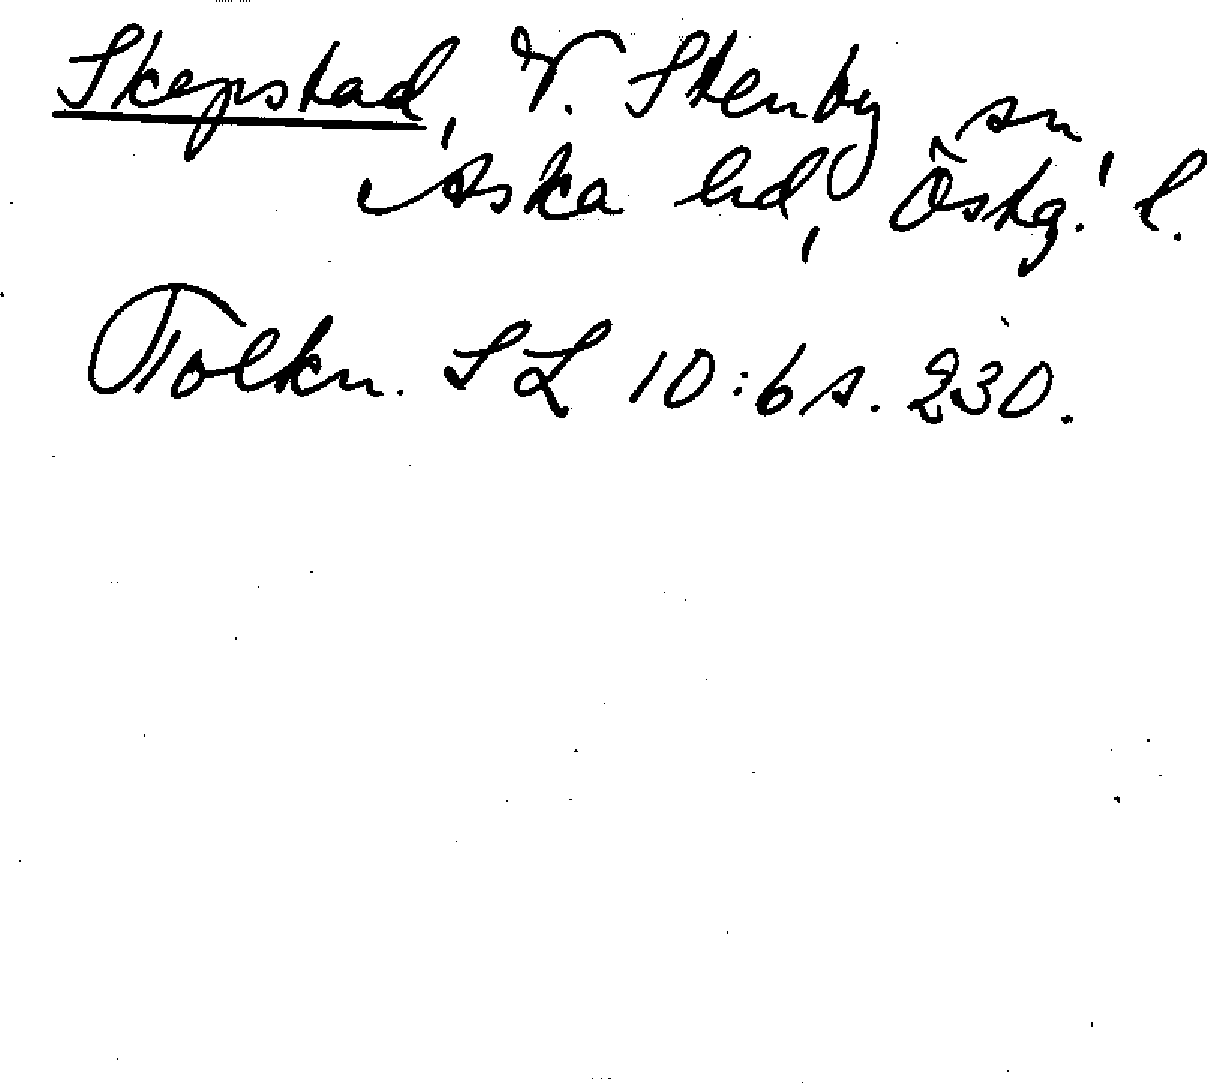 Skepstad, V. Stenby sn
Aska hd, Östg. l.
Tolkn. SL 10:6 s. 230.